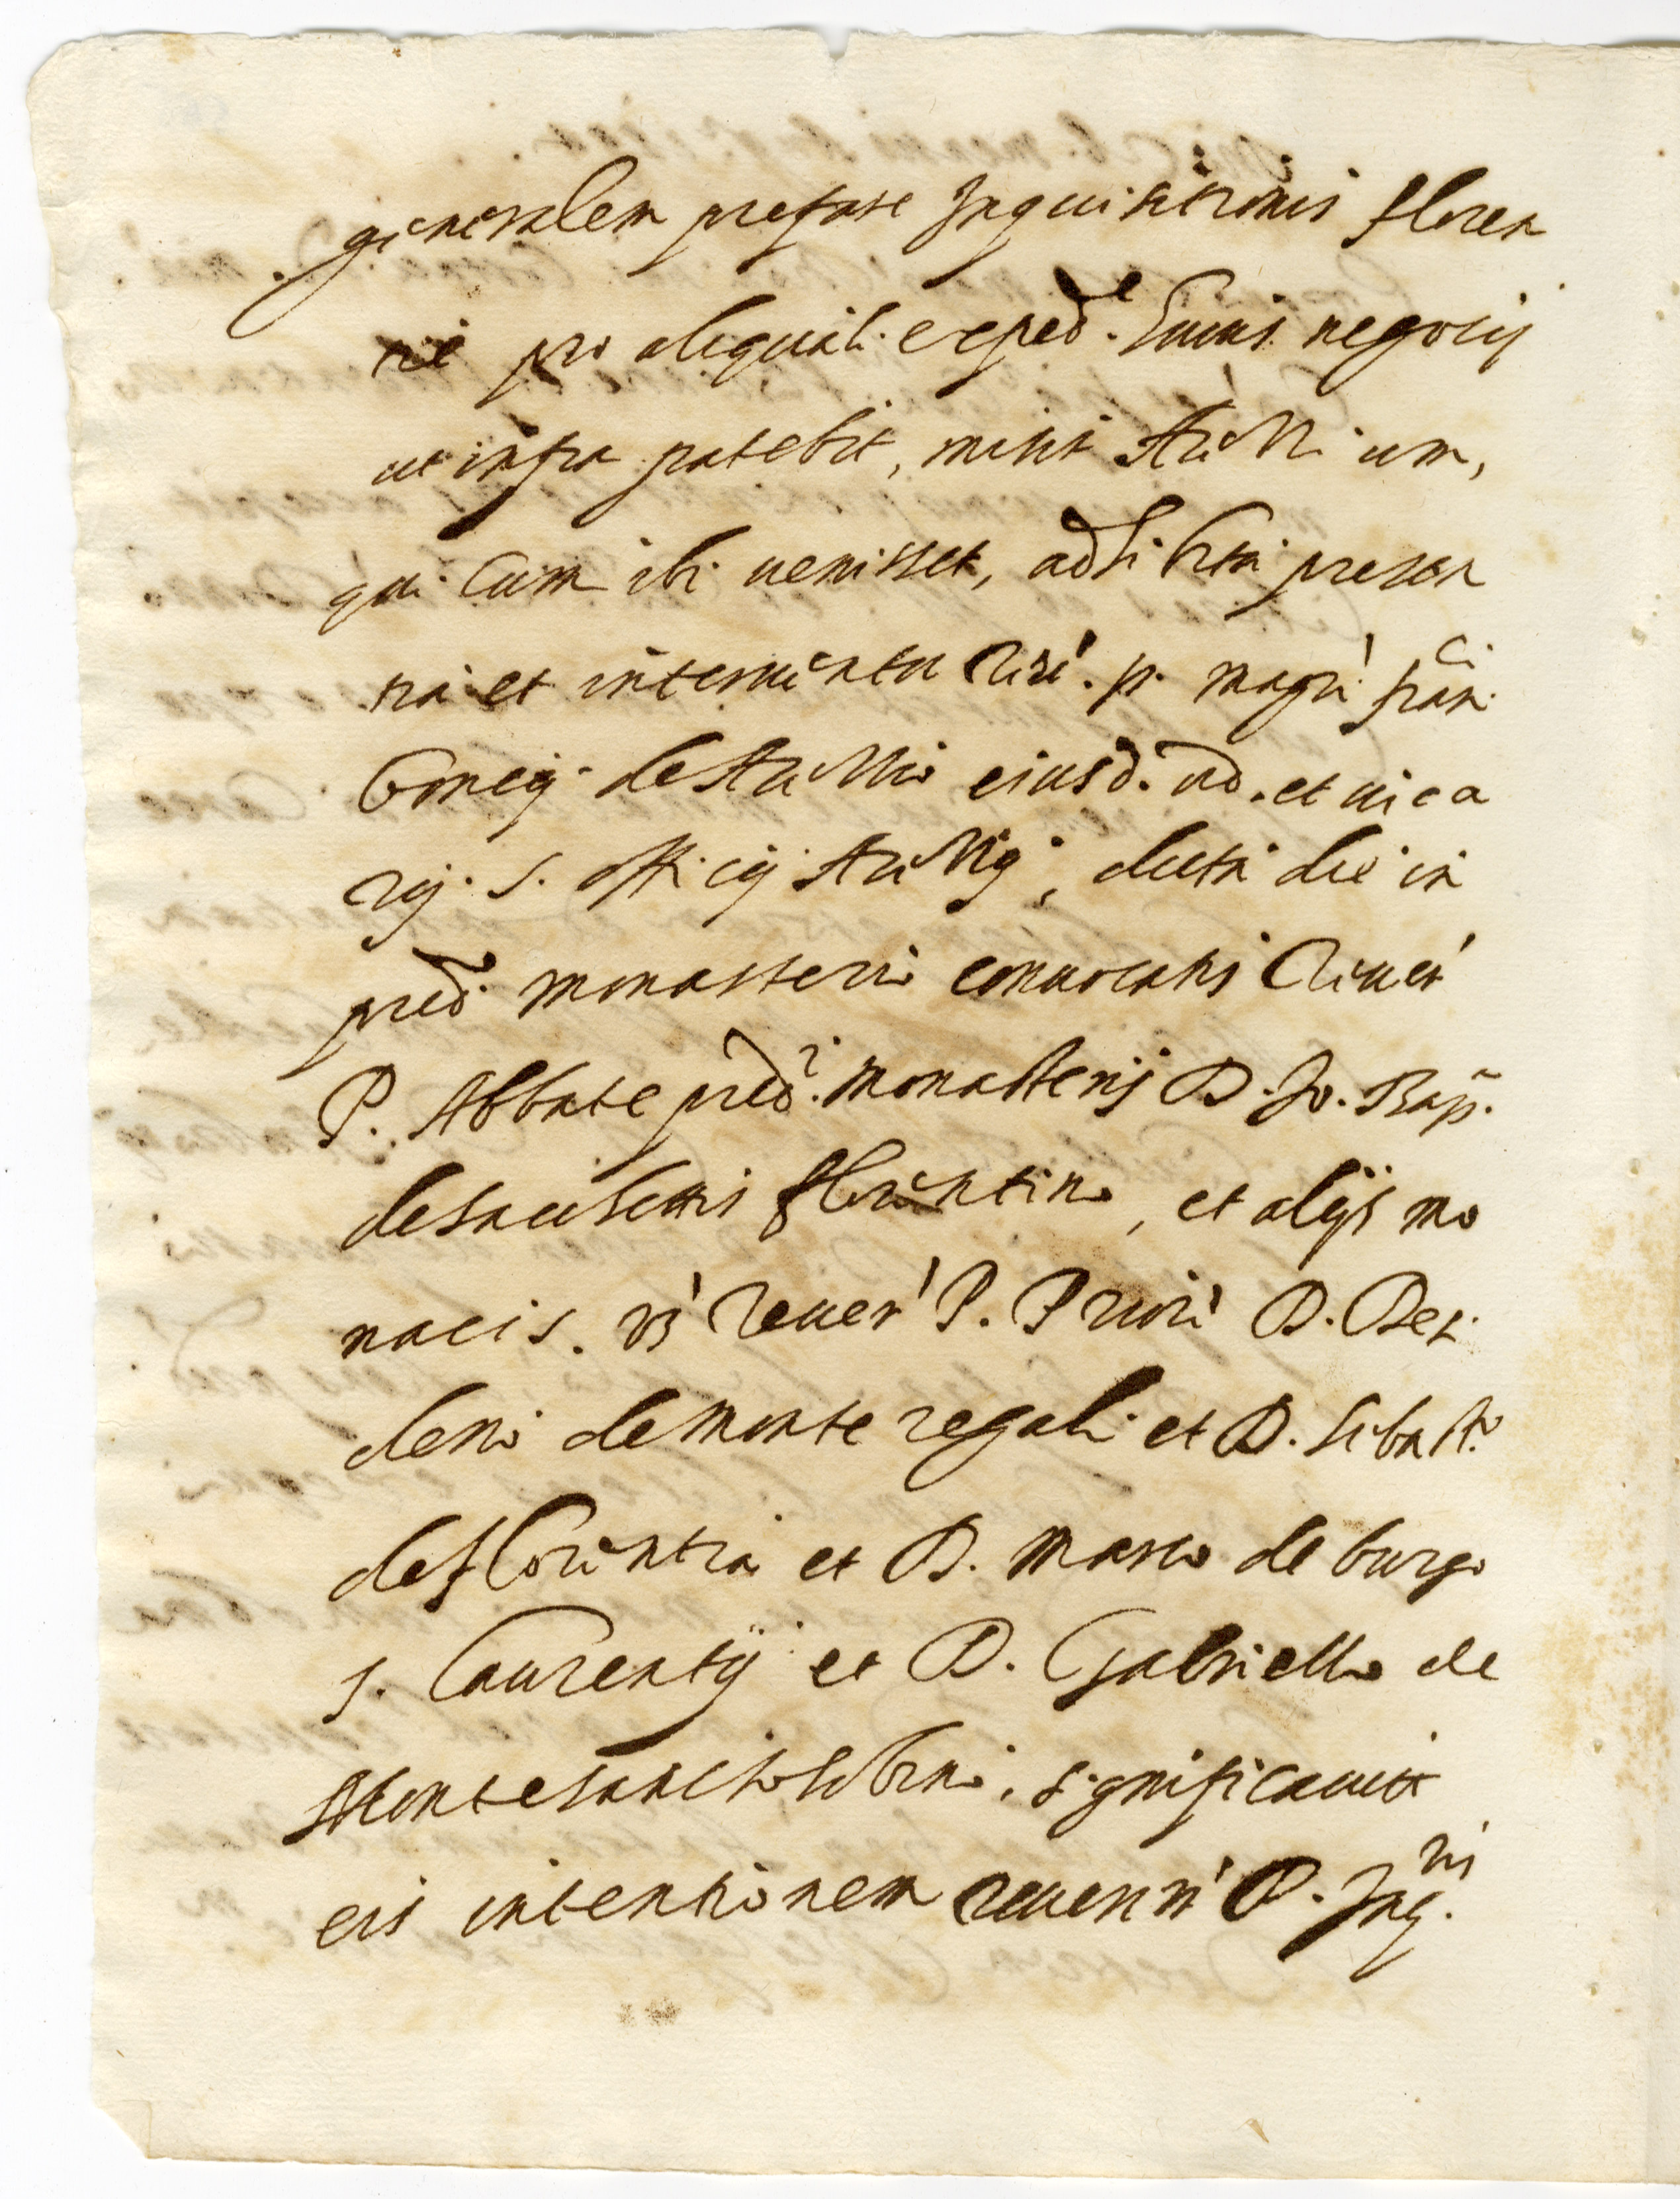 generalem prefate Inquisitionis floren
tie pro aliquali exped.e huius negocij
ut infra patebit, misit Aretium,
qui cum ibi uenisset, adhibita presen
tia et interuentu Rdi. p. magri fran.ci
boncij de Aretio eiusd. ord. et uica
rij s. officij Aretij, dicta die in
pred. monasterio conuocatis Reuer
P. Abbate pred.i monasterij D. Jo. Bap.
de sachettis florentino, et alijs mo
nacis. vz Reuer P. Priore D. Des.
derio de monte regali et D. Sebast.o
de florentia et D. marco de burgo
s. Laurentij et D. Gabriello de
Monte sancto sobrino, significauit
eis intentionem reuerendi P. Inq.ris